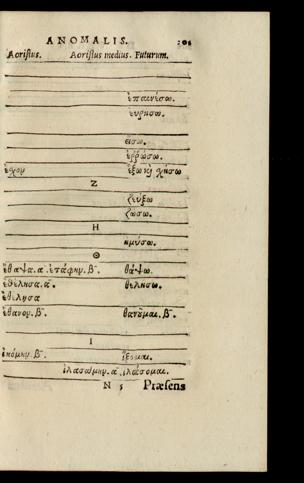 ANOMALIS. 201
Aoristus. Aoristus medius. Futurum.
ἐπαινέσω.
εὑρήσω.
ἐῤῥώσω.
ἔχον ἕξω καὶ χήσω
Z
ζεύξω
ζώσω.
H
ἡμύσω.
Θ
ἔθαψα.α. ἐτάφην.β. θάψω.
ἐθέλησα.α. θελήσω.
ἐθέλησα
ἔθανον.β. θανοῦμαι.β.
I
ἱκόμην.β. ἵξομαι.
ἱλασάμην.α. ἱλάσομαι.
N 5 Præsens